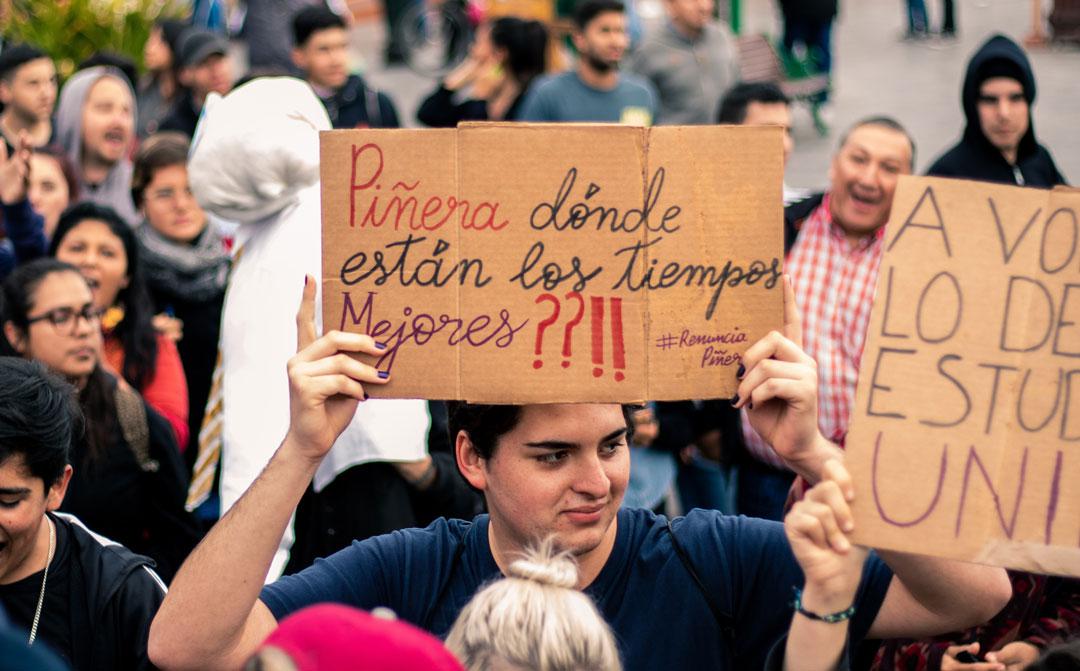 Piñera dónde
están los tiempos
Mejores ??!!
#Renuncia
Piñer
A VO
LO DE
ESTUD
UNI